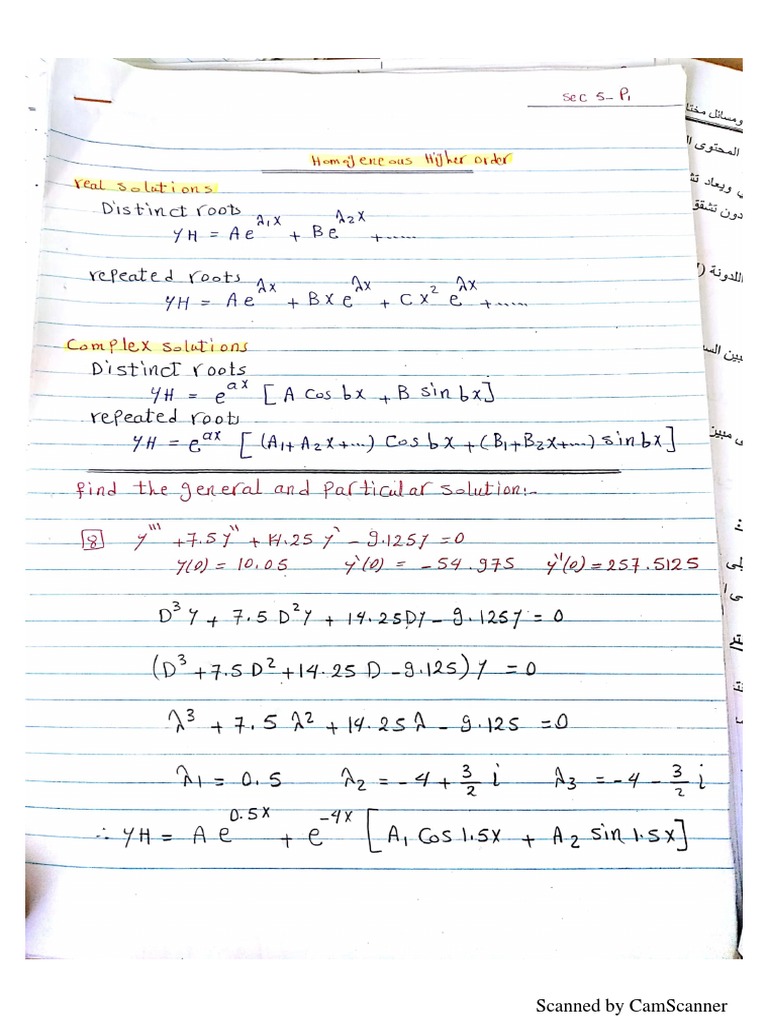 sec 5- P1
Homogeneous Higher order
real solutions
Distinct roots
yH = A e^λ1x + B e^λ2x + .....
repeated roots
yH = A e^λx + B x e^λx + C x² e^λx + .....
Complex solutions
Distinct roots
yH = e^ax [ A cos bx + B sin bx ]
repeated roots
yH = e^ax [ (A1+A2x+...) cos bx + (B1+B2x+...) sin bx ]
find the general and particular solution:-
8 y''' + 7.5 y'' + 14.25 y' - 9.125 y = 0
y(0) = 10.05 y'(0) = -54.975 y''(0) = 257.5125
D³y + 7.5 D²y + 14.25 Dy - 9.125 y = 0
(D³ + 7.5 D² + 14.25 D - 9.125) y = 0
λ³ + 7.5 λ² + 14.25 λ - 9.125 = 0
λ1 = 0.5 λ2 = -4 + 3/2 i λ3 = -4 - 3/2 i
∴ yH = A e^0.5x + e^-4x [ A1 cos 1.5x + A2 sin 1.5x ]
ومسائل مختا
المحتوى ال
ي ويعاد تش
دون تشقق
اللدونة (ا
بين الس
ى مبين
Scanned by CamScanner